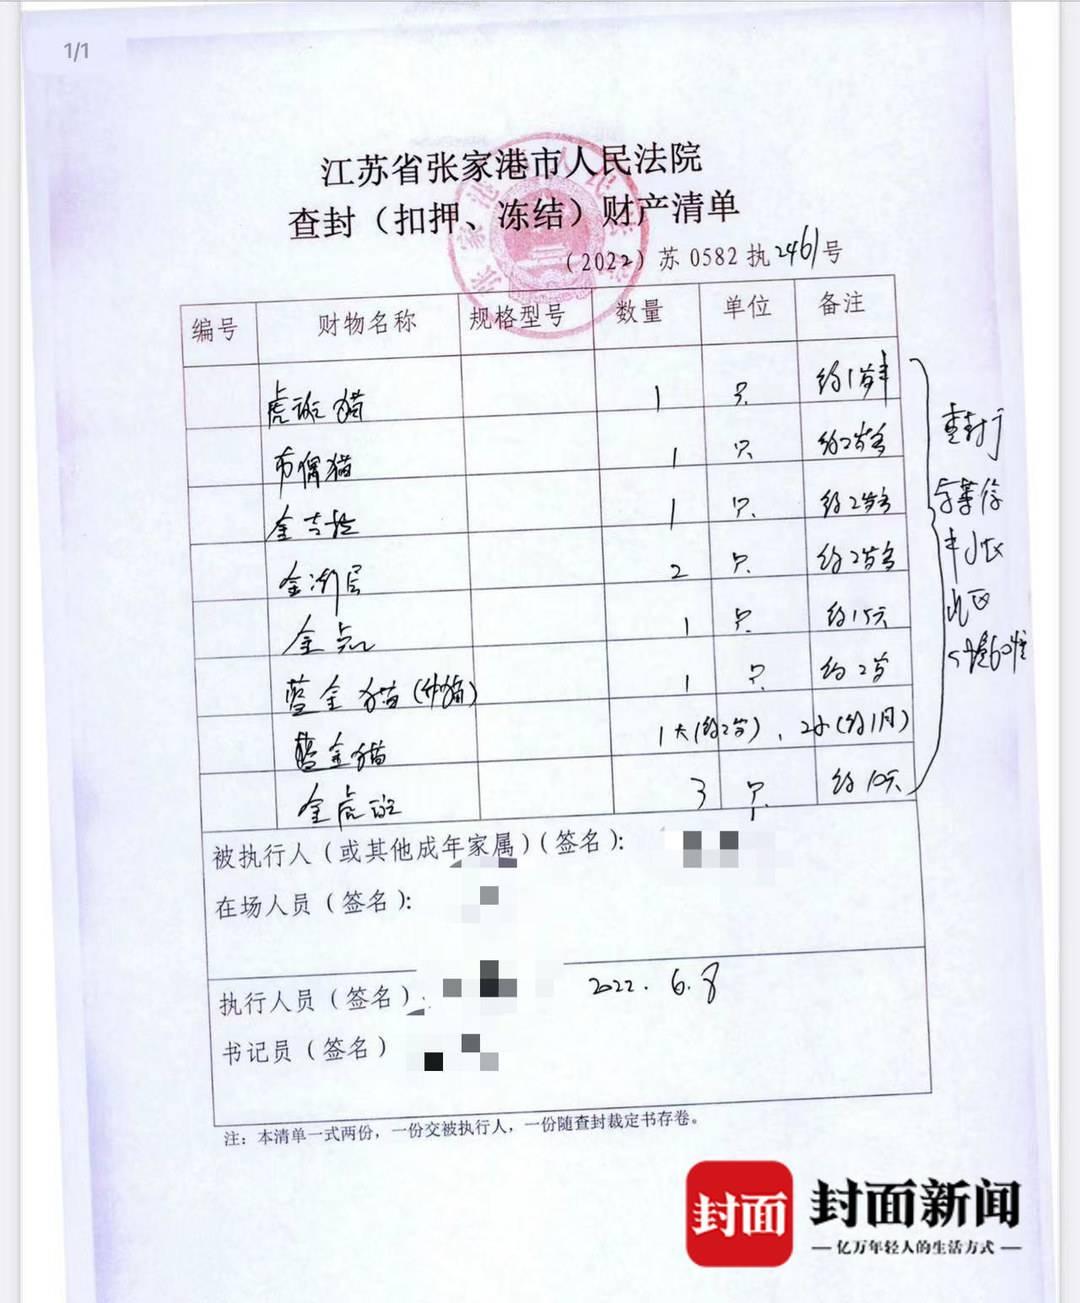 1/1
江苏省张家港市人民法院
查封（扣押、冻结）财产清单
（2022）苏 0582 执2461号
编号 财物名称 规格型号 数量 单位 备注
虎斑猫 1 只 约1岁半
布偶猫 1 只 约2岁多
金吉拉 1 只 约2岁多
金渐层 2 只 约2岁多
金点 1 只 约15天
蓝金猫( 猫) 1 只 约2岁
蓝金猫 1大(约2岁)、2小(约1月)
金虎斑 3 只 约10天
查封于
被执行人（或其他成年家属）(签名):
在场人员（签名）:
执行人员（签名）: 2022.6.8
书记员（签名）
注：本清单一式两份，一份交被执行人，一份随查封裁定书存卷。
封面 封面新闻
亿万年轻人的生活方式